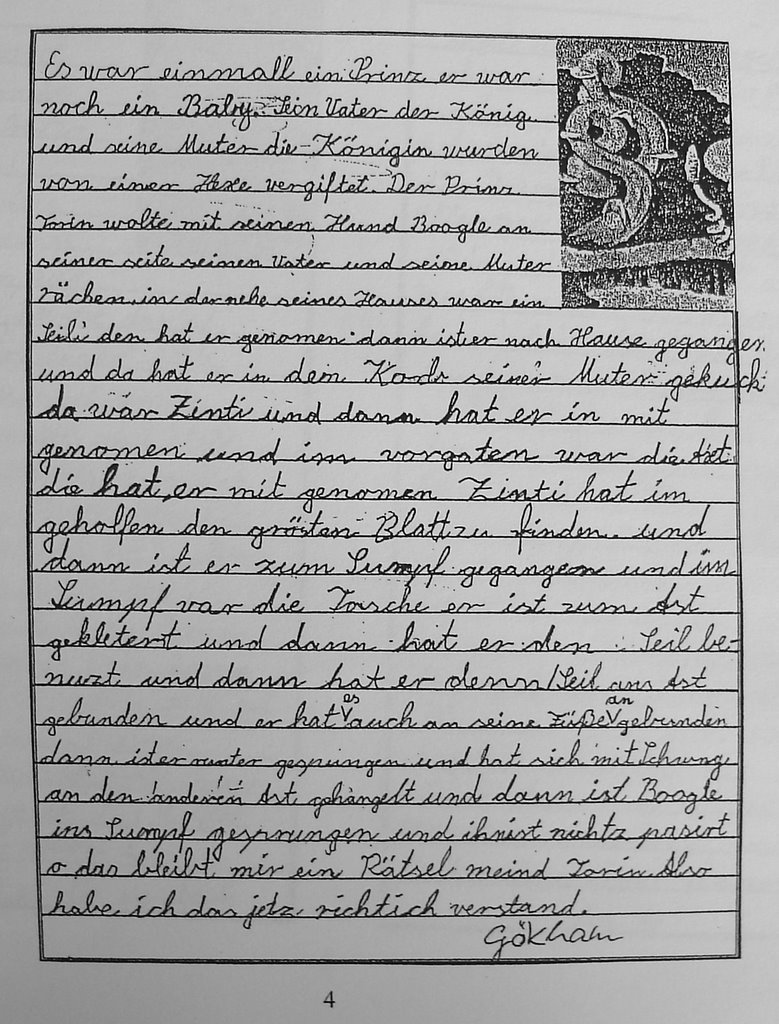 Es war einmall ein Prinz er war
noch ein Baby. Sein Vater der König
und seine Muter die Königin wurden
von einer Hexe vergiftet. Der Prinz
Torin wolte mit seinen Hund Boogle an
seiner seite seinen Vater und seine Muter
rächen, in der nehe seines Hauses war ein
Seil den hat er genomen. dann ist er nach Hause gegangen
und da hat er in dem Korb seiner Muter gekuck
da war Zinti und dann hat er in mit
genomen und im vorgaten war die Axt
die hat er mit genomen Zinti hat im
geholfen den grösten Blatt zu finden. und
dann ist er zum Sumpf gegangen und im
Sumpf var die Tasche er ist zum Ast
gekletert und dann hat er den Seil be-
nuzt und dann hat er denn Seil ans Ast
gebunden und er hat es auch an seine Füße an gebunden
dann ister runter gesprungen und hat sich mit Schwung
an den anderen Ast gehängelt und dann ist Boogle
ins Sumpf gesprungen und ihn ist nichtz pasirt
o das bleibt mir ein Rätsel meind Torin. Also
habe ich das jetz richtich verstand.
Gökham
4